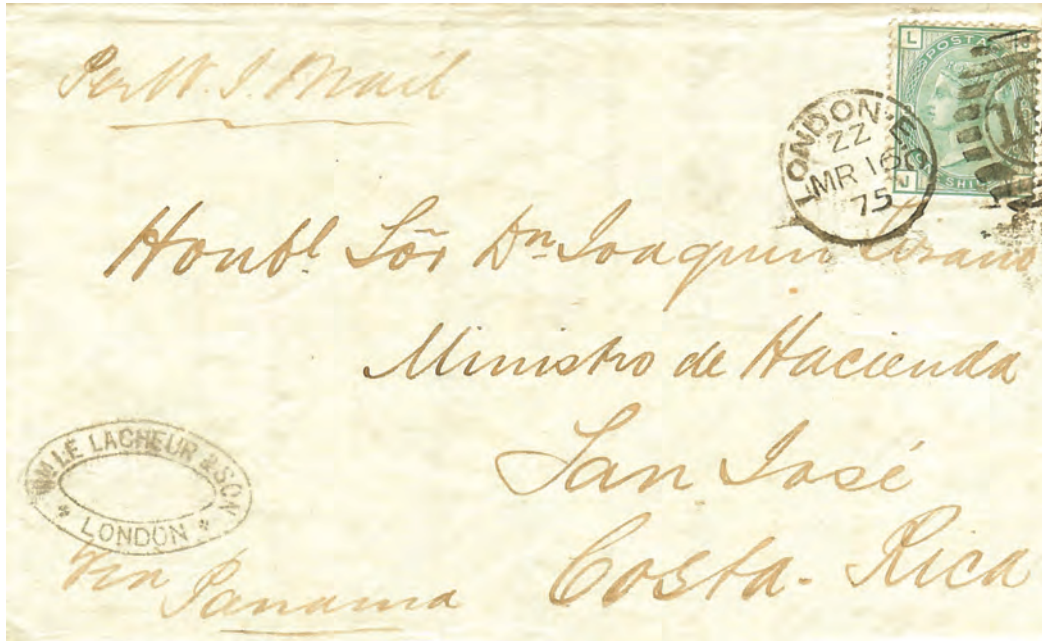 Per W. I. Mail
L
POSTA
J
ONE SHIL
LONDON·E.C
ZZ
MR 16
75
16
Honbl Sõr Dn Joaquin
Ministro de Hacienda
San José
Costa-Rica
WM LE LACHEUR & SON
* LONDON *
Via Panama